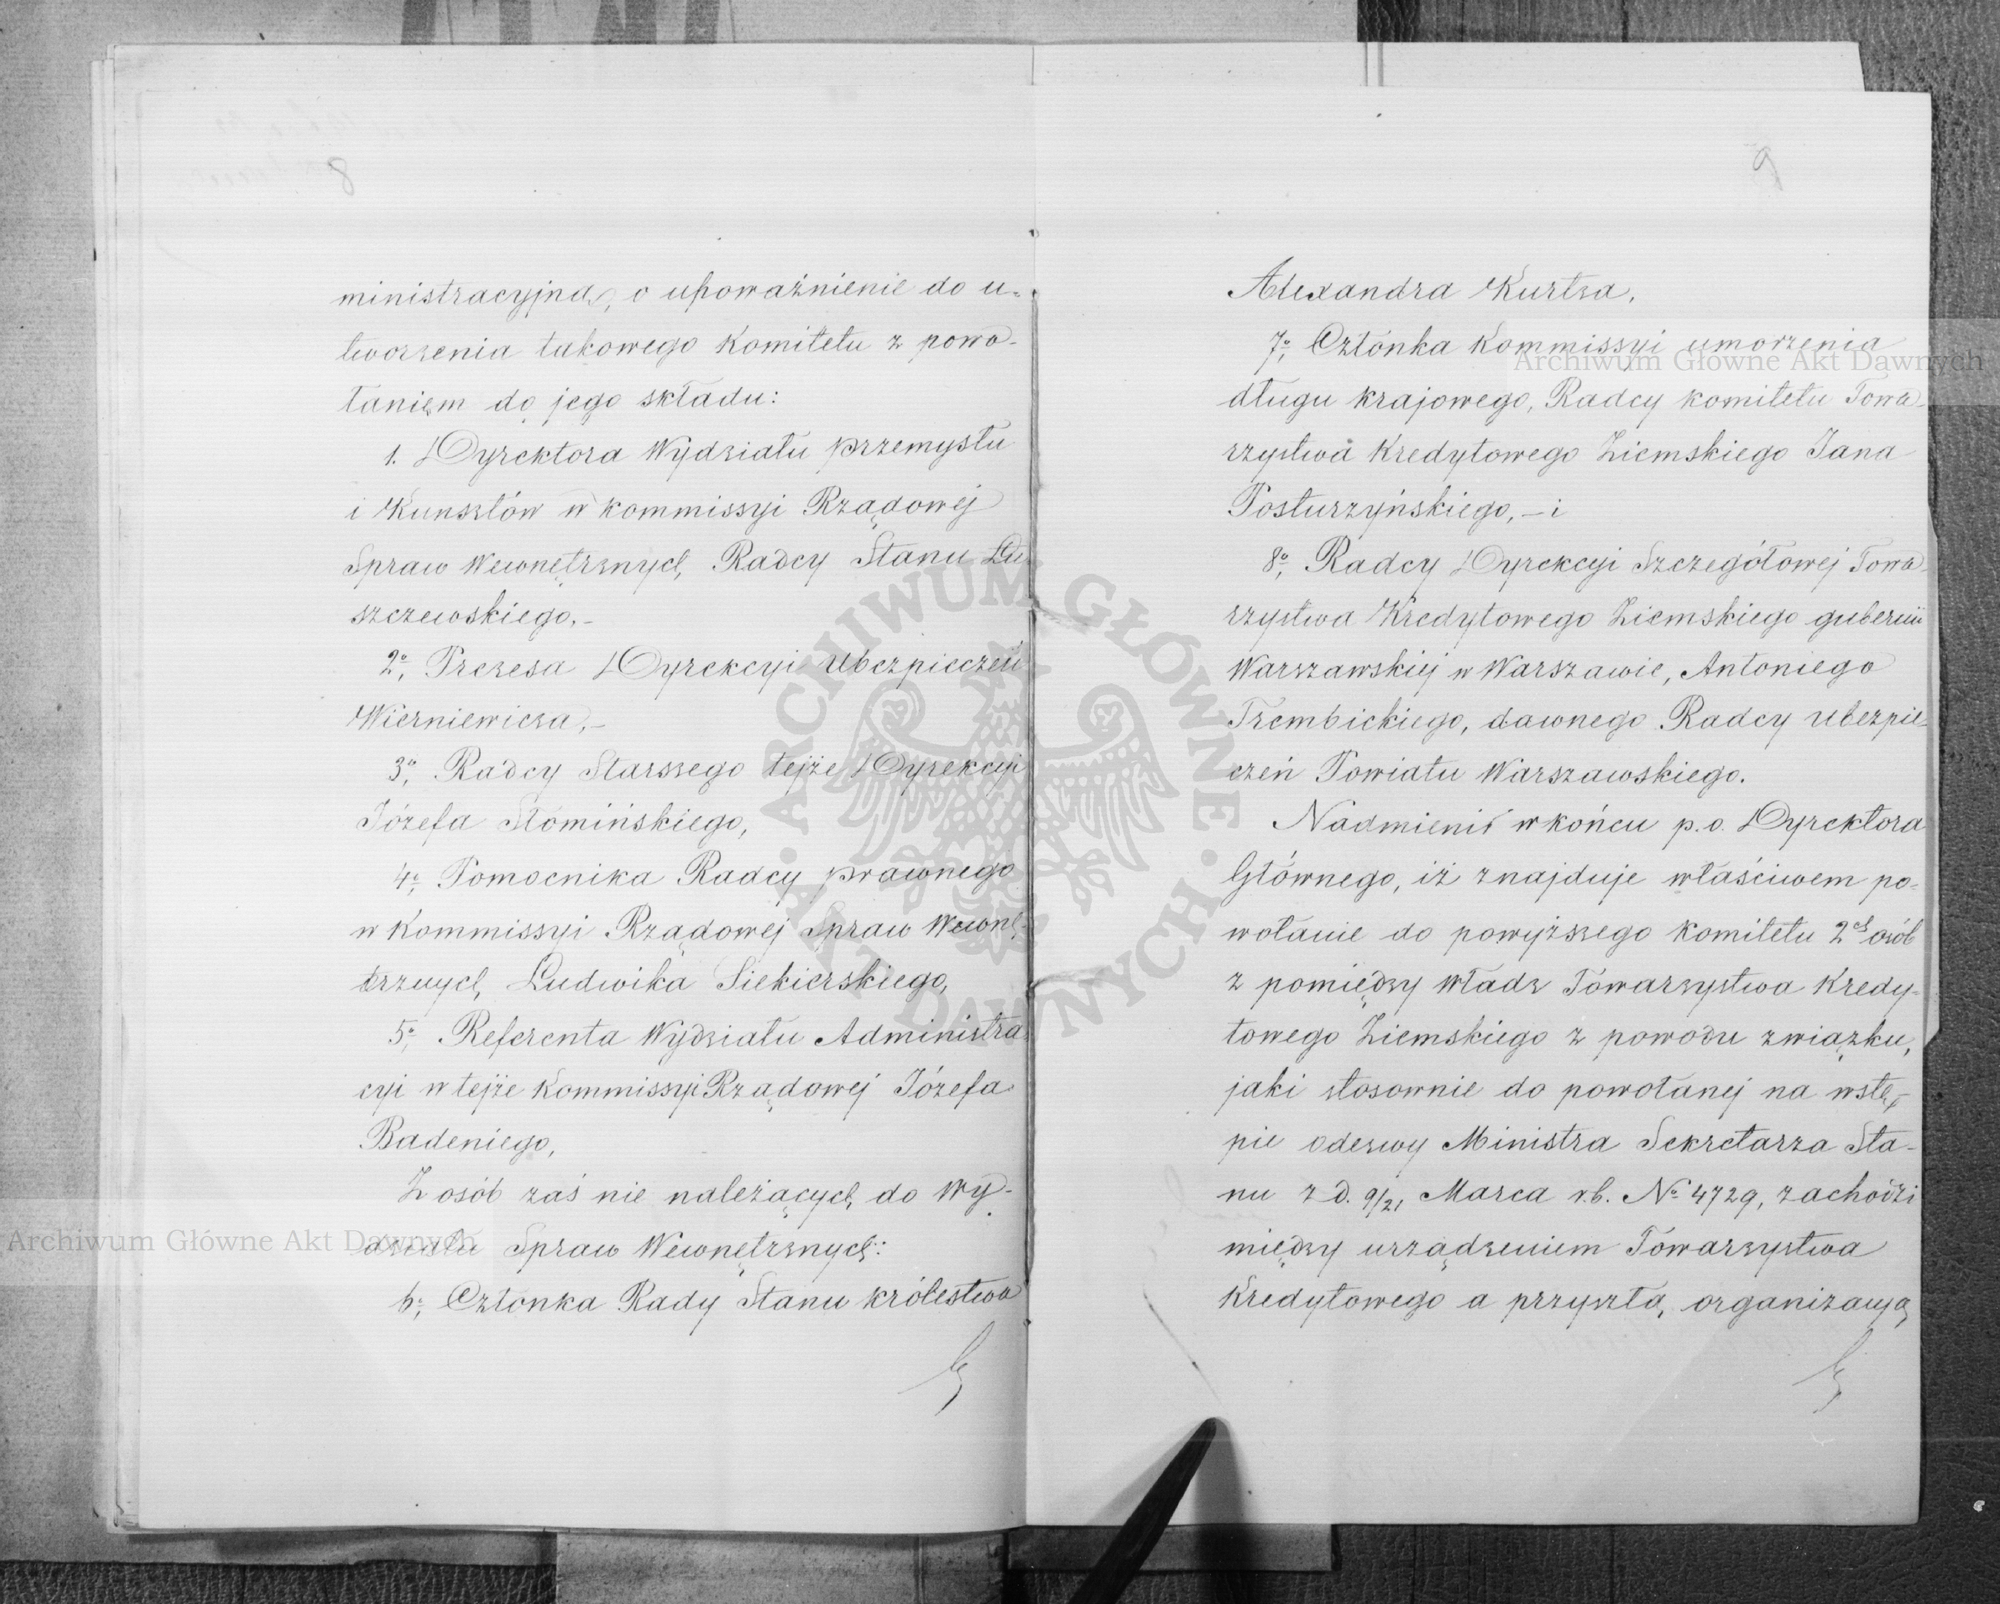 8
ministracyjną, o upoważnienie do u-
tworzenia takowego Komitetu z powo-
łaniem do jego składu:
1. Dyrektora Wydziału przemysłu
i Kunsztów w Kommissyi Rządowej
Spraw Wewnętrznych, Radcy Stanu Łu-
szczewskiego.-
2o, Prezesa Dyrekcyi Ubezpieczeń
Wierniewicza,-
3o, Radcy Starszego tejże Dyrekcyi
Józefa Słomińskiego,
4o, Pomocnika Radcy prawnego
w Kommissyi Rządowej Spraw Wewnę-
trznych, Ludwika Siekierskiego,
5o, Referenta Wydziału Administra-
cyi w tejże Kommissyi Rządowej Józefa
Badeniego,
Z osób zaś nie należących do Wy-
działu Spraw Wewnętrznych:
6o, Członka Rady Stanu Królestwa
9
Alexandra Kurtza,
7o, Członka Kommissyi umorzenia
długu krajowego, Radcy komitetu Towa-
rzystwa Kredytowego Ziemskiego Jana
Posturzyńskiego, - i
8o, Radcy Dyrekcyi Szczegółowej Towa-
rzystwa Kredytowego Ziemskiego gubernii
Warszawskiej w Warszawie, Antoniego
Trembickiego, dawnego Radcy Ubezpie-
czeń Powiatu Warszawskiego.
Nadmienił w końcu p.o. Dyrektora
Głównego, iż znajduje właściwem po-
wołanie do powyższego komitetu 2ch osób
z pomiędzy Władz Towarzystwa Kredy-
towego Ziemskiego z powodu związku,
jaki stosownie do powołanej na wstę-
pie odezwy Ministra Sekretarza Sta-
nu z d. 9/21 Marca r.b. No 4729, zachodzi
między urządzeniem Towarzystwa
Kredytowego a przyszłą organizacyą
Archiwum Główne Akt Dawnych
Archiwum Główne Akt Dawnych
ARCHIWUM GŁÓWNE AKT DAWNYCH